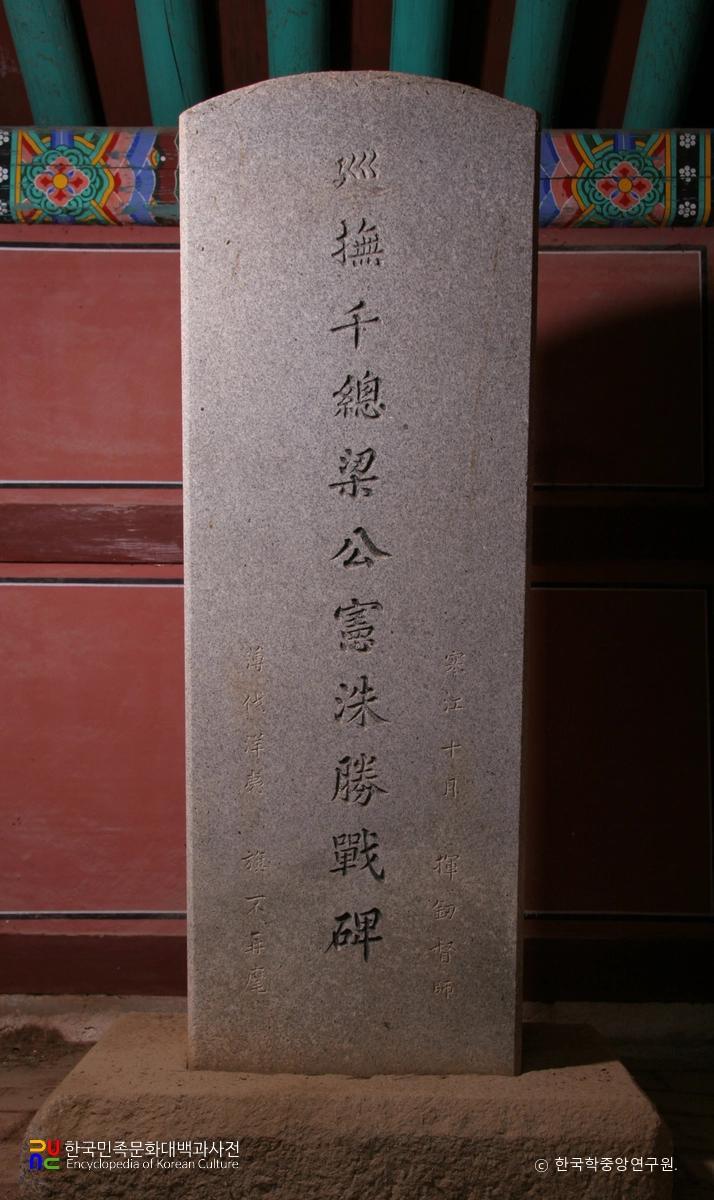 巡撫千總梁公憲洙勝戰碑
寒江十月 揮劒督師
薄伐洋夷 旗不再麾
한국민족문화대백과사전
Encyclopedia of Korean Culture
© 한국학중앙연구원.